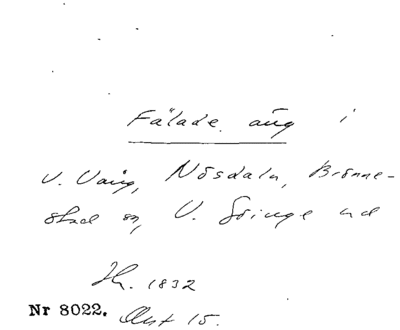 Fälade äng i
V. Vång, Nösdala, Brönne-
stad o, V. Göinge hd
Jh. 1832
Nr 8022. Akt 15.